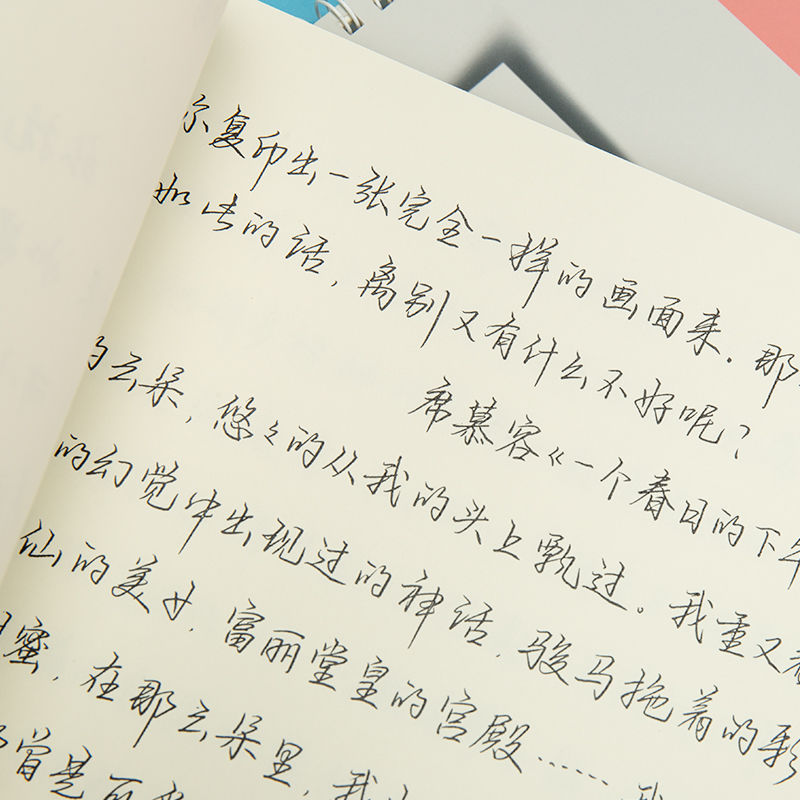 尔复印出一张完全一样的画面来。那
如生的话，离别又有什么不好呢？
席慕容《一个春日的下午
的云朵，悠々的从我的头上飘过。我重又看
的幻觉中出现过的神话，骏马拖着的彩
仙的美女，富丽堂皇的宫殿……我
蜜，在那云朵里，我
曾是